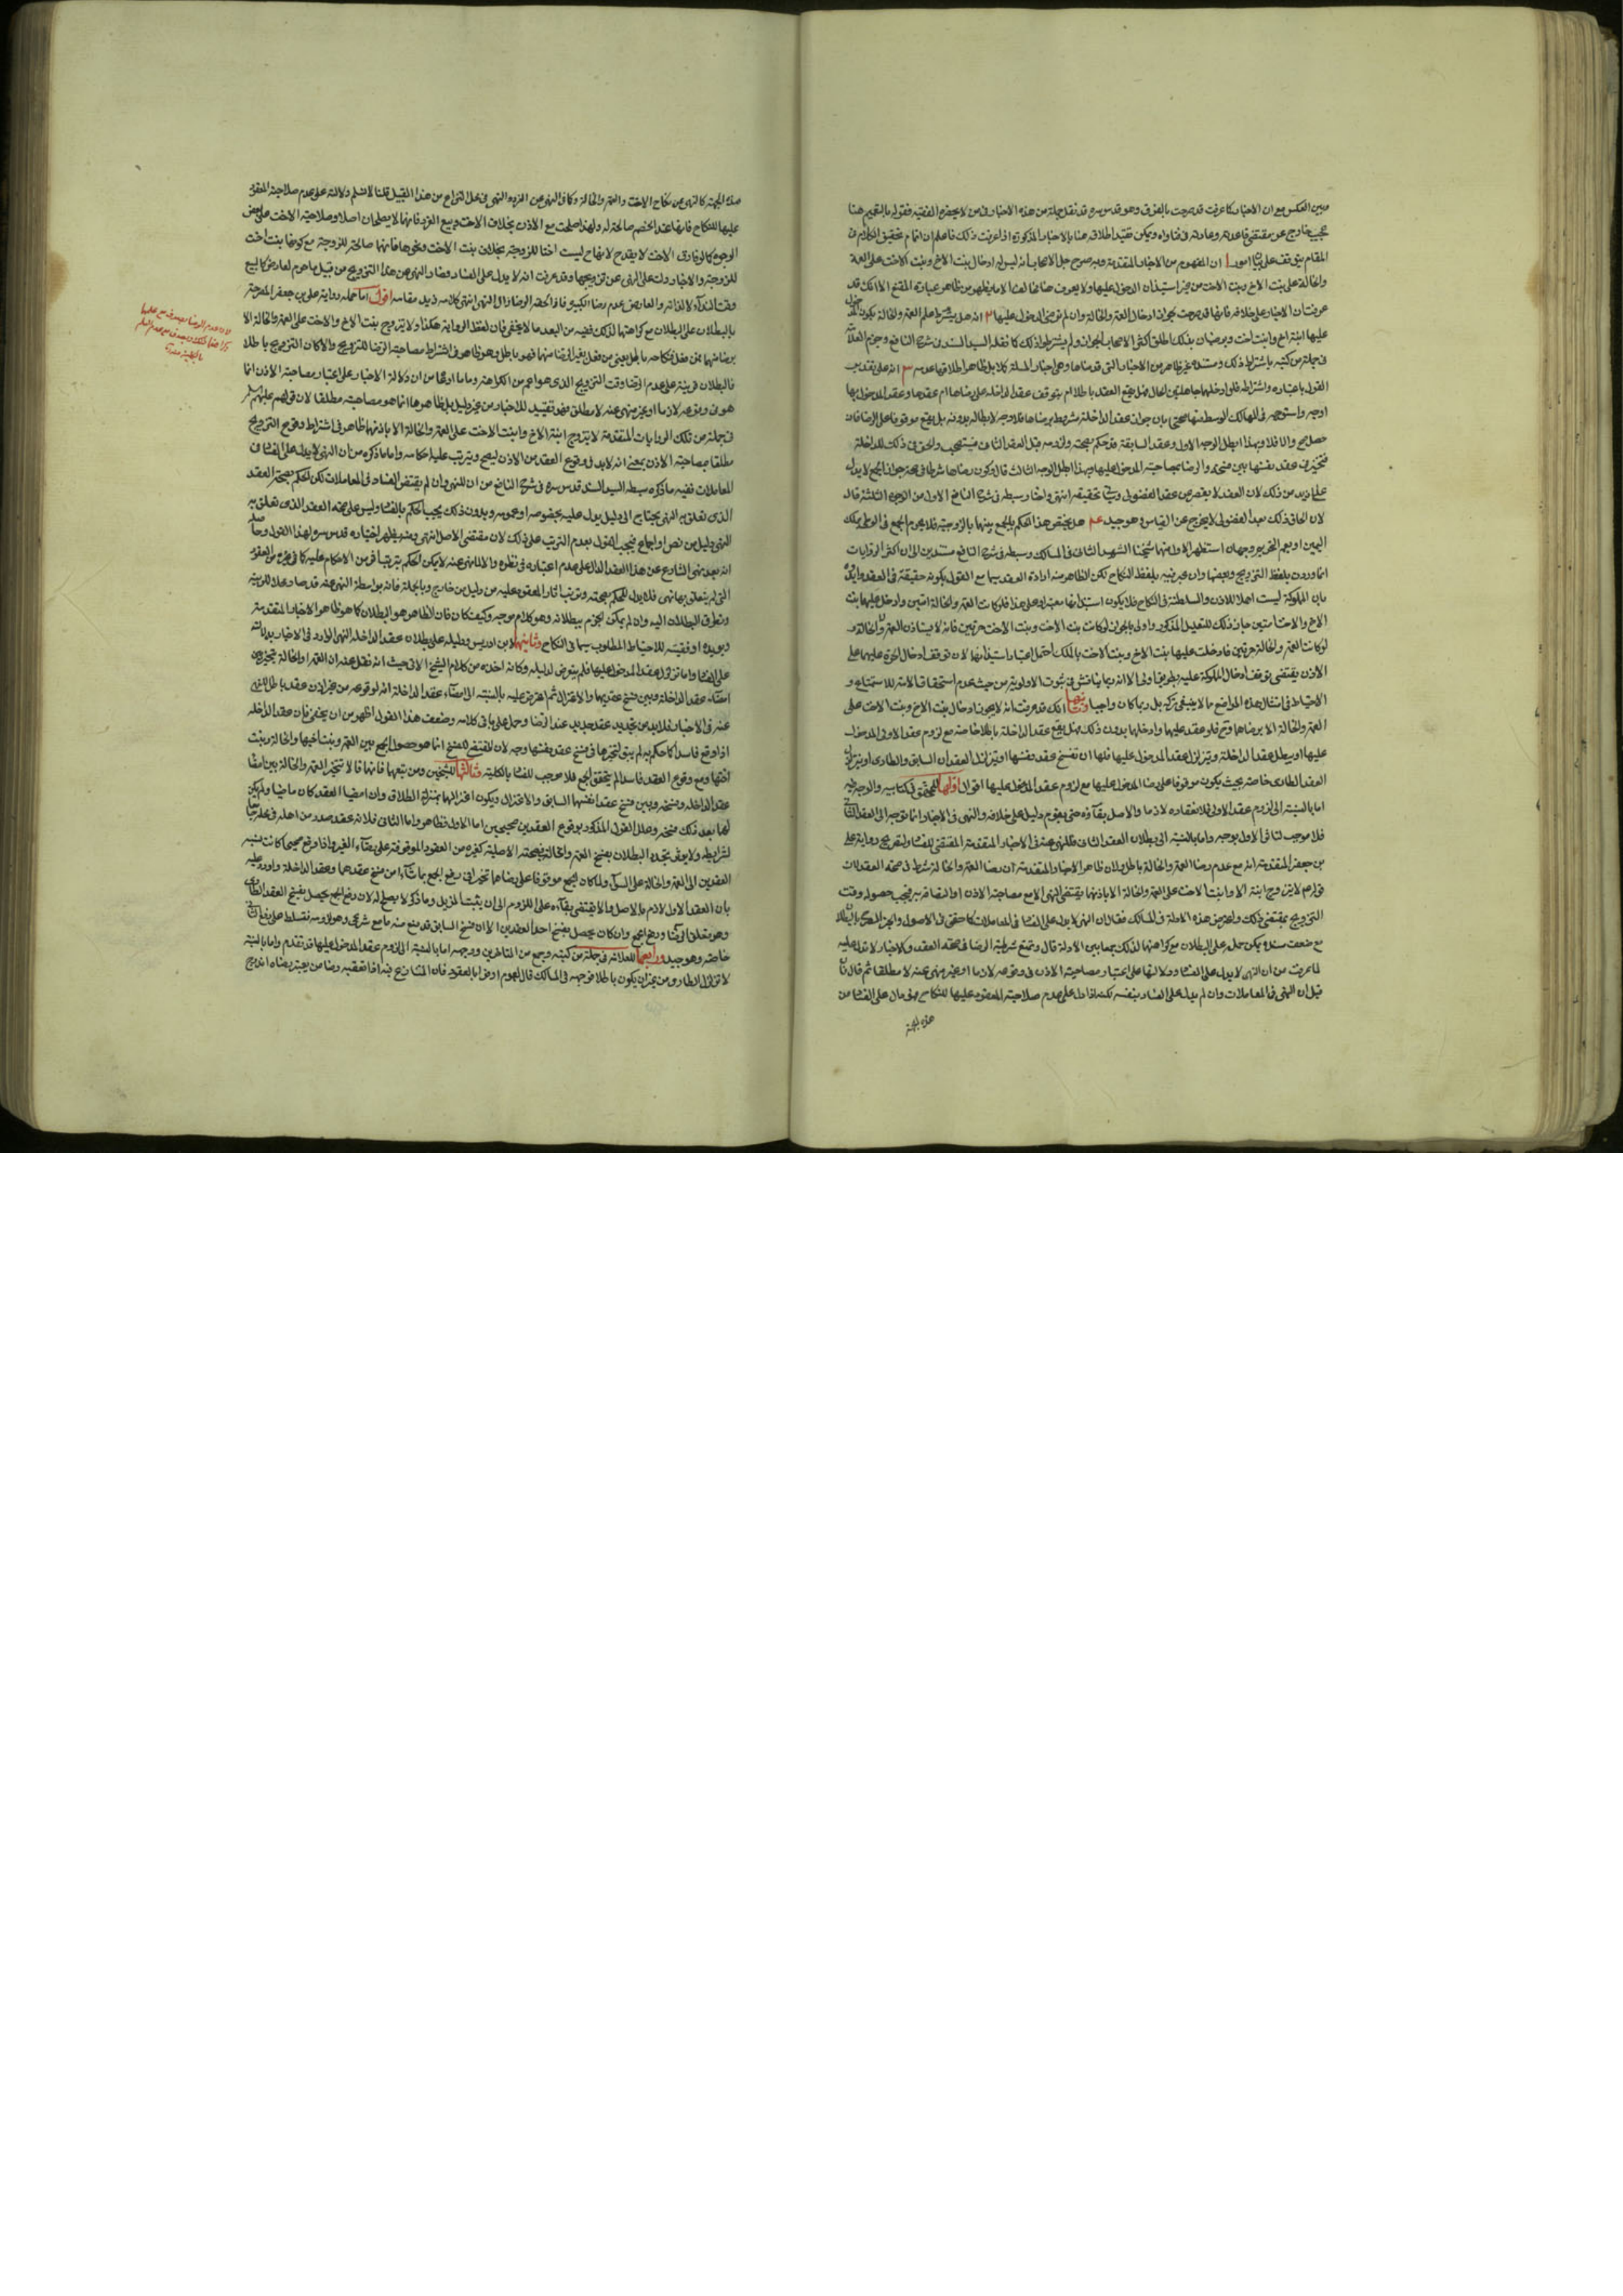 وبين العكس مع ان الاخبار كما عرفت قد صرحت بالفرق وهو قدس سره قد نقل جملة من هذه الاخبار في من لا يحضره الفقيه فقوله بالتعميم هنا
عجيب خارج عن مقتضى قاعدته وعادته في فتاواه ويمكن تقييد اطلاقه هنا بالاخبار المذكورة اذا عرفت ذلك فاعلم ان اتمام تحقيق الكلام في
المقام يتوقف على بيان امور ا ان المفهوم من الاخبار المتقدمة وبه صرح جل الاصحاب انه ليس له ادخال بنت الاخ وبنت الاخت على العمة
والخالة على بنت الاخ وبنت الاخت من غير استيذان المدخول عليها ولا يعرف هنا مخالف الا ما يظهر من ظاهر عبارة المقنع الا انك قد
عرفت ان الاخبار على خلافه فانها قد صرحت بجواز ادخال العمة والخالة وان لم ترض المدخول عليها ٢ انه هل يشترط علم العمة والخالة بكون
عليها ابنة اخ وابنت اخت ويرضيان بذلك اطلق اكثر الاصحاب الجواز ولم يشترطوا ذلك كما نقله السيد السند في شرح النافع وجزم العلامة
في جملة من كتبه باشتراط ذلك ومستنده غير ظاهر من الاخبار التي قدمناها وهي اخبار المسئلة كلا بل ظاهر اطلاقها عدمه ٣ انه على تقدير
القول باعتباره واشتراطه فلو ادخلهما جاهلتين بالحال فهل يقع العقد باطلا ام يتوقف عقد الداخلة على رضاها ام عقدها وعقد المدخول بها
اوجه واستوجه في المسالك الوسط منها محتجا بان جواز عقد الداخلة مشروط برضاها فلا وجه لابطاله بدونه بل يقع موقوفا على الرضا فان
حصل صح والا فلا وبهذا ابطل الوجه الاول وعقد السابقة قد حكم بصحته ولزومه قبل العقد الثاني فيستصحب والحق في ذلك للداخلة
فتتخير في عقد نفسها بين فسخه والرضا بمصاحبة المدخول عليها وبهذا ابطل الوجه الثالث قال وكون رضاها شرطا في صحة جواز الجمع لا يدل
على ازيد من ذلك لان العقد لا يقصر عن عقد الفضولي وسياتي تحقيقه انتهى واختار سبطه في شرح النافع الاول من الوجوه الثلثة قال
لان الحاق ذلك بعقد الفضولي لا يخرج عن القياس وهو جيد ٤ هل يختص هذا الحكم بالجمع بينهما بالزوجية فلا يحرم الجمع في الوطي بملك
اليمين او يعم التحريم وجهان استظهر الاول منهما شيخنا الشهيد الثاني في المسالك وسبطه في شرح النافع مستندين الى ان اكثر الروايات
انما وردت بلفظ التزويج وبعضها وان عبر فيه بلفظ النكاح لكن الظاهر منه ارادة العقد سيما مع القول بكونه حقيقة في العقد
بان المملوكة ليست اهلا للاذن والسلطنة في النكاح فلا يكون استيذانها معتبرا وعلى هذا فلو كانت العمة والخالة امتين وادخل عليهما بنت
الاخ والاخت امتين جاز ذلك للتعليل المذكور واولى بالجواز لو كانت بنت الاخت وبنت الاخت حرتين فانه لا يستاذن العمة والخالة
لو كانت العمة والخالة حرتين فادخلت عليها بنت الاخ وبنت الاخت بالملك احتمل اعتبار استيذانهما لان توقف ادخال الحرة عليهما على
الاذن يقتضي توقف ادخال المملوكة عليه بطريق اولى الا انه ربما يناقش في ثبوت الاولوية من حيث عدم استحقاق الامة للاستمتاع و
الاحتياط في امثال هذه المواضع مما لا ينبغي تركه بل ربما كان واجبا وثانيها انك قد عرفت انه لا يجوز ادخال بنت الاخ وبنت الاخت على
العمة والخالة الا برضاهما وح فلو عقد عليهما وادخلهما بدون ذلك فهل يقع عقد الداخلة باطلا خاصة مع لزوم عقد الاولى المدخول
عليها او يبطل عقد الداخلة ويتزلزل عقد المدخول عليها فلها ان تفسخ عقد نفسها او يتزلزل العقدان السابق والطاري او يتزلزل
العقد الطاري خاصة بحيث يكون موقوفا على رضا المدخول عليها مع لزوم عقد المدخول عليها اقوال اولها للمحقق في كتابيه والوجه فيه
اما بالنسبة الى لزوم عقد الاولى فلانعقاده لازما والاصل بقاؤه حتى يقوم دليل على خلافه والنهي في الاخبار انما توجه الى العقد الثاني
فلا موجب لتنافي الاول بوجه واما بالنسبة الى بطلان العقد الثاني فللنهي عنه في الاخبار المتقدمة المقتضي للفساد ولتصريح رواية علي
بن جعفر المتقدمة انه مع عدم رضا العمة والخالة باطل ولان ظاهر الاخبار المتقدمة ان رضا العمة والخالة شرط في صحة العقد لان
قوله عم لا يتزوج ابنة الاخ وابنت الاخت على العمة والخالة الا باذنهما يقتضي النهي الا مع مصاحبة الاذن او التصاقه به فيجب حصوله وقت
التزويج بمقتضى ذلك واعترض هذه الادلة في المسالك فقال ان النهي لا يدل على الفساد في المعاملات كما حقق في الاصول والخبر المصرح بالبطلان
مع ضعف سنده يمكن حمله على البطلان مع كراهتهما لذلك جمعا بين الادلة قال ونمنع شرطية الرضا في صحة العقد والاخبار لا تدل عليه
لما عرفت من ان النهي لا يدل على الفساد ودلالتها على اعتبار مصاحبة الاذن في وقوعه لازما او غير منهي عنه لا مطلقا ثم قال فان
قيل ان النهي في المعاملات وان لم يدل على الفساد بنفسه لكنه اذا دل على عدم صلاحية المعقود عليها للنكاح فهو دال على الفساد من
هذه الجهة
هذه الجهة كالنهي عن نكاح الاخت والعمة والخالة وكالنهي عن الغرر والنهي في محل النزاع من هذا القبيل قلنا لا نسلم دلالته على عدم صلاحية المعقود
عليها للنكاح فانها عند الخصم صالحة له ولهذا صلحت مع الاذن بخلاف الاخت وبيع الغرر فانهما لا يصلحان اصلا وصلاحية الاخت على بعض
الوجوه كما لو فارق الاخت لا يقدح لانها ح ليست اختا للزوجة بخلاف بنت الاخت ونحوها فانها صالحة للزوجية مع كونها بنت اخت
للزوجة والاخبار دلت على النهي عن تزويجها وقد عرفت انه لا يدل على الفساد فصار النهي عن هذا التزويج من قبيل ما حرم لعارض كالبيع
وقت النداء لا لذاته والعارض عدم رضا الكبيرة فاذا لحقه الرضا زال النهي انتهى كلامه زيد مقامه اقول اما حمله رواية علي بن جعفر المصرحة
بالبطلان على البطلان مع كراهتهما لذلك ففيه من البعد ما لا يخفى فان لفظ الرواية هكذا ولا يتزوج بنت الاخ والاخت على العمة والخالة الا
برضا منهما فمن فعل فنكاحه باطل يعني من فعل بغير الرضا منهما فهو باطل وهو ظاهر في اشتراط مصاحبة الرضا للتزويج والا كان التزويج باطلا
فالبطلان مرتب على عدم الرضا وقت التزويج الذي هو اعم من الكراهة وما ادعاه من ان دلالة الاخبار على اعتبار مصاحبة الاذن انما
هو في وقوعه لازما او غير منهي عنه لا مطلق فهو تقييد للاخبار من غير دليل بل ظاهرها انما هو مصاحبته مطلقا لان قولهم عليهم السلام
في جملة من تلك الروايات المتقدمة لا يتزوج ابنة الاخ وابنت الاخت على العمة والخالة الا باذنهما ظاهر في اشتراط وقوع التزويج
مطلقا بمصاحبة الاذن بمعنى انه لا بد في وقوع العقد من الاذن ليصح ويترتب عليه احكامه واما ما ذكره من ان النهي لا يدل على الفساد في
المعاملات ففيه ما ذكره سبطه السيد السند قدس سره في شرح النافع من ان النهي وان لم يقتض الفساد في المعاملات لكن الحكم بصحة العقد
الذي تعلق به النهي يحتاج الى دليل يدل عليه بخصوصه او عمومه وبدون ذلك يجب الحكم بالفساد وليس على صحة العقد الذي تعلق به
النهي دليل من نص او اجماع فيجب القول بعدم الترتب على ذلك لان مقتضى الاصل انتهى ومنه يظهر اختياره قدس سره لهذا القول وحاصله
انه بعد نهي الشارع عن هذا العقد الدال على عدم اعتباره في نظره والا لما نهى عنه لا يمكن الحكم بترتب اثر من الاحكام عليه كما في غيره من العقود
التي لم يتعلق بها نهي فلا بد للحكم بصحته وترتب اثار المعقود عليه من دليل من خارج وبالجملة فانه بواسطة النهي عنه قد صار محلا للريبة
وتطرق البطلان اليه وان لم يمكن الجزم ببطلانه وهو كلام موجه وكيف كان فان الظاهر هو البطلان كما هو ظاهر الاخبار المتقدمة
ويؤيده اوفقيته للاحتياط المطلوب سيما في النكاح وثانيها لابن ادريس ودليله على بطلان عقد الداخلة النهي الوارد في الاخبار بدلالته
على الفساد واما تزلزل عقد المدخول عليها فلم يتعرض لدليله وكانه اخذه من كلام الشيخ الاتي حيث انه نقل عنه ان العمة والخالة تتخير بين
امضاء عقد الداخلة وبين فسخ عقديهما والاعتزال ثم اعترض عليه بالنسبة الى امضاء عقد الداخلة انه لو وقوعه من غير اذن عقد باطل للنهي
عنه في الاخبار فلا بد من تجديد عقد جديد عند الرضا وحمل على باقي كلامه وضعف هذا القول اظهر من ان يخفى فان عقد الداخلة
اذا وقع فاسدا كما حكم به لم يبق لتخيرها في فسخ عقد نفسها وجه لان المقتضي للفسخ انما هو حصول الجمع بين العمة وبنت اخيها والخالة وبنت
اختها ومع وقوع العقد فاسدا لم يتحقق الجمع فلا موجب للفساد بالكلية وثالثها للشيخين ومن تبعهما فانهما قالا تتخير العمة والخالة بين امضاء
عقد الداخلة وفسخه وبين فسخ عقد انفسهما السابق والاعتزال ويكون اعتزالهما بمنزلة الطلاق وان امضيا العقد كان ماضيا ولم يكن
لهما بعد ذلك فسخه وعلل القول المذكور بوقوع العقدين صحيحين اما الاول فظاهر واما الثاني فلانه عقد صدر من اهله في محله جامع
لشرايطه ولا يوثر تجدد البطلان بفسخ العمة والخالة في صحته الاصلية كغيره من العقود الموقوفة على رضاء الغير واذا وقع صحيحا كانت نسبة
العقدين الى العمة والخالة على السواء ولما كان الجمع موقوفا على رضاهما تخيرا في رفع الجمع بما شاءا من فسخ عقدهما وعقد الداخلة واورد عليه
بان العقد الاول لازم بالاصل والاصل يقتضي بقاءه على اللزوم الى ان يثبت المزيل وما ذكر لا يصلح له لان رفع الجمع يحصل بفسخ العقد الطاري
وهو متعلق الرضا ورفع الجمع وان كان يحصل بفسخ احد العقدين الا ان فسخ السابق قد منع منه مانع شرعي وهو لزومه فتسلط على فسخ الثاني
خاصة وهو جيد ورابعها للعلامة في جملة من كتبه وجمع من المتاخرين ووجهه اما بالنسبة الى لزوم عقد المدخول عليها قد تقدم واما بالنسبة
لتزلزل الطارو من غير ان يكون باطلا فوجهه في المسالك قال لعموم اوفوا بالعقود فان المتنازع فيه اذا تعقبه رضا من يعتبر رضاه اندرج